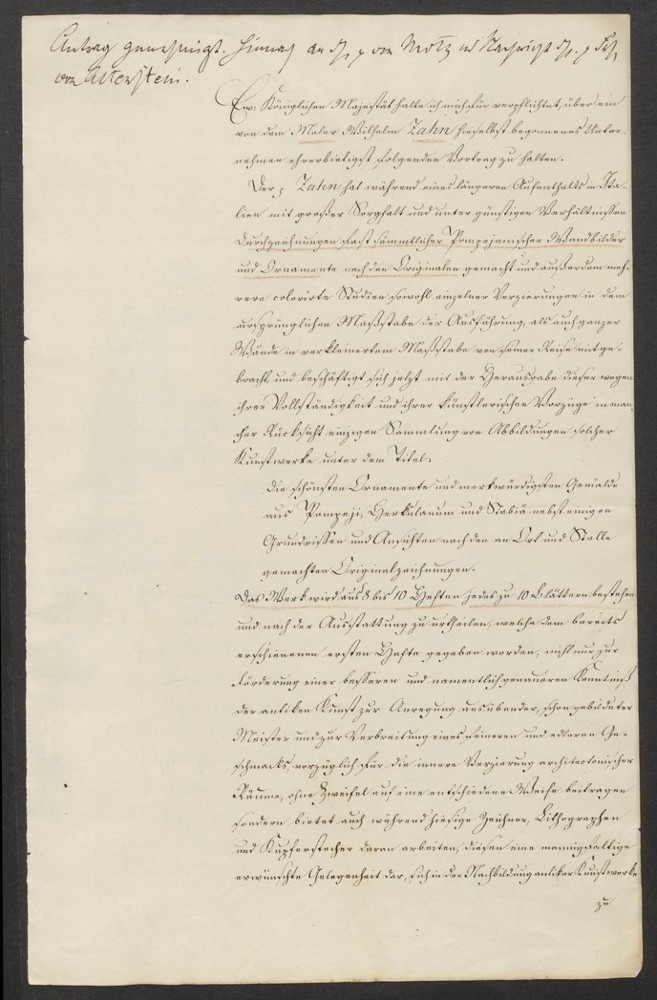 Antrag genehmigt. Hienach an H. p von Motz und Nachricht H. p Frh.
von Altenstein.
Ew: Königlichen Majestät halte ich mich für verpflichtet, über ein
von dem Maler Wilhelm Zahn hieselbst begonnenes Unter-
nehmen ehrerbietigst folgenden Vortrag zu halten.
Der p Zahn hat während eines längeren Aufenthalts in Ita-
lien mit großer Sorgfalt und unter günstigen Verhältnissen
Durchzeichnungen fast sämmtlicher Pompejanischer Wandbilder
und Ornamente nach den Originalen gemacht und außerdem meh-
rere colorirte Studien sowohl einzelner Verzierungen in dem
ursprünglichen Maßstabe der Ausführung, als auch ganzer
Wände in verkleinertem Maßstabe von seiner Reise mitge-
bracht, und beschäftigt sich jetzt mit der Herausgabe dieser wegen
ihrer Vollständigkeit und ihrer künstlerischen Vorzüge in man-
cher Rücksicht einzigen Sammlung von Abbildungen solcher
Kunstwerke unter dem Titel:
die schönsten Ornamente und merkwürdigsten Gemälde
aus Pompeji, Herkulanum und Stabiä nebst einigen
Grundrissen und Ansichten nach den an Ort und Stelle
gemachten Originalzeichnungen.
Das Werk wird aus 8 bis 10 Heften jedes zu 10 Blättern bestehen
und nach der Ausstattung zu urtheilen, welche dem bereits
erschienenen ersten Hefte gegeben worden, nicht nur zur
Förderung einer besseren und namentlich genaueren Kenntniß
der antiken Kunst zur Anregung ausübender, schon gebildeter
Meister und zur Verbreitung eines feineren und edleren Ge-
schmacks, vorzüglich für die innere Verzierung architectonischer
Räume, ohne Zweifel auf eine entschiedene Weise beitragen
sondern bietet auch während hiesige Zeichner, Lithographen
und Kupferstecher daran arbeiten, diesen eine mannigfaltige
erwünschte Gelegenheit dar, sich in der Nachbildung antiker Kunstwerke
zu